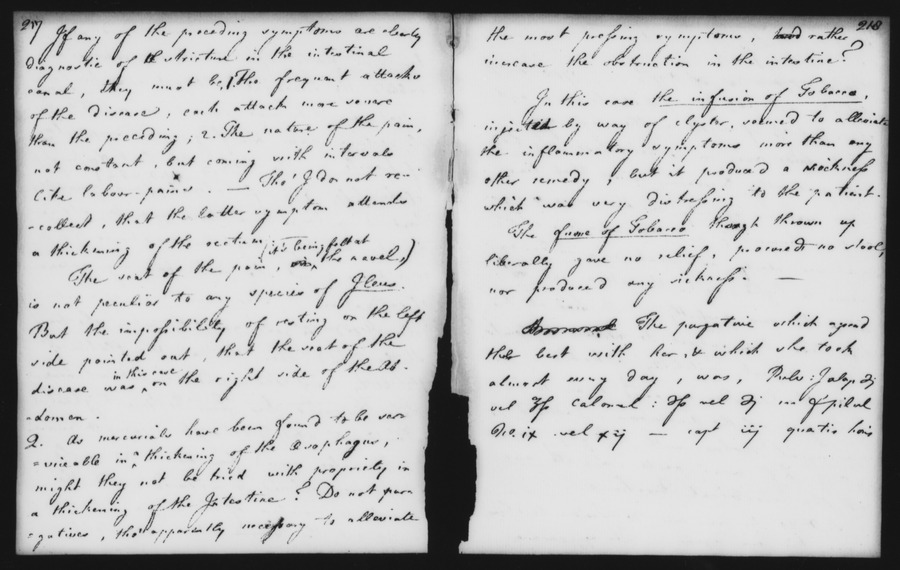 217
If any of the preceding symptoms are clearly
diagnostic of the stricture in the intestinal
canal, they must be, 1. The frequent attacks
of the disease, each attack more severe
than the preceding; 2. The nature of the pain,
not constant, but coming with intervals
like labour-pains. — Tho' I do not re-
-collect, that the latter symptom attends
a thickening of the rectum.
The seat of the pain, (it's being felt at the navel,)
is not peculiar to any species of Ileus.
But the impossibility of resting on the left
side pointed out, that the seat of the
disease in this case was on the right side of the Ab-
-domen.
Q. As mercurials have been found to be ser-
-viceable in a thickening of the Œsophagus,
might they not be tried with propriety in
a thickening of the Intestine? Do not pur-
-gatives, tho' apparently necessary to alleviate
218
the most pressing symptoms, rather
increase the obstruction in the intestine?
In this case the infusion of Tobacco,
injected by way of clyster, seemed to alleviate
the inflammatory symptoms more than any
other remedy; but it produced a sickness
which was very distressing to the patient.
The fume of Tobacco though thrown up
liberally gave no relief, procured no stool,
nor produced any sickness. —
The purgative which agreed
the best with her, & which she took
almost every day, was, Pulv: Jalap ʒj
vel ʒſs Calomel: ℈ſs vel ℈j
No. ix vel xij — capt iij quatis horis